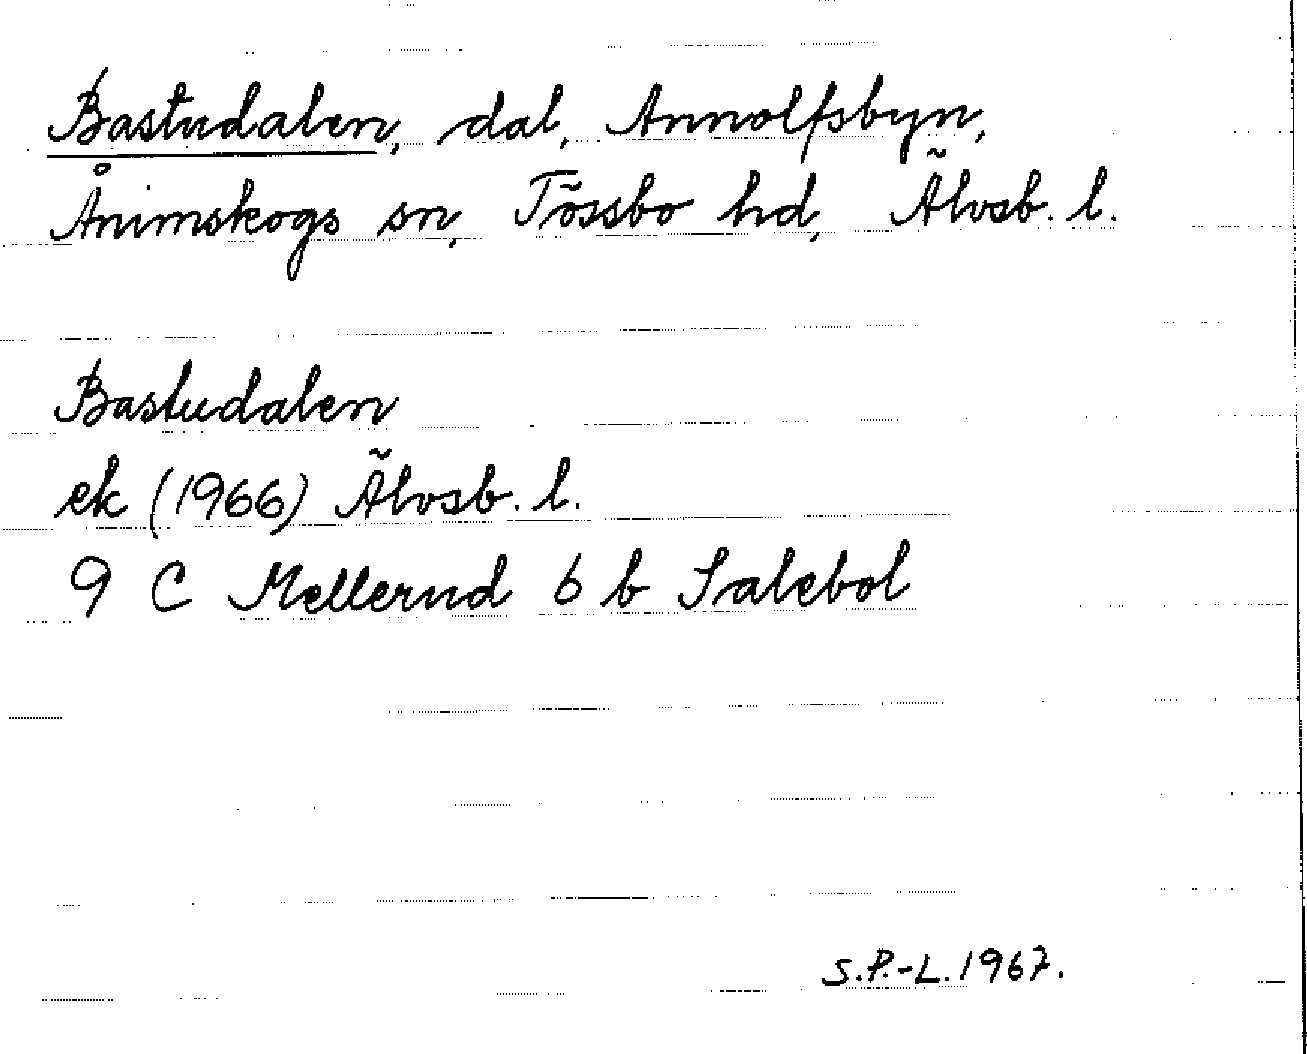 Bastudalen, dal, Annolfsbyn,
Ånimskogs sn, Tössbo hd, Älvsb. l.
Bastudalen
ek (1966) Älvsb. l.
9 C Mellerud 6 b Salebol
S.P.-L. 1967.